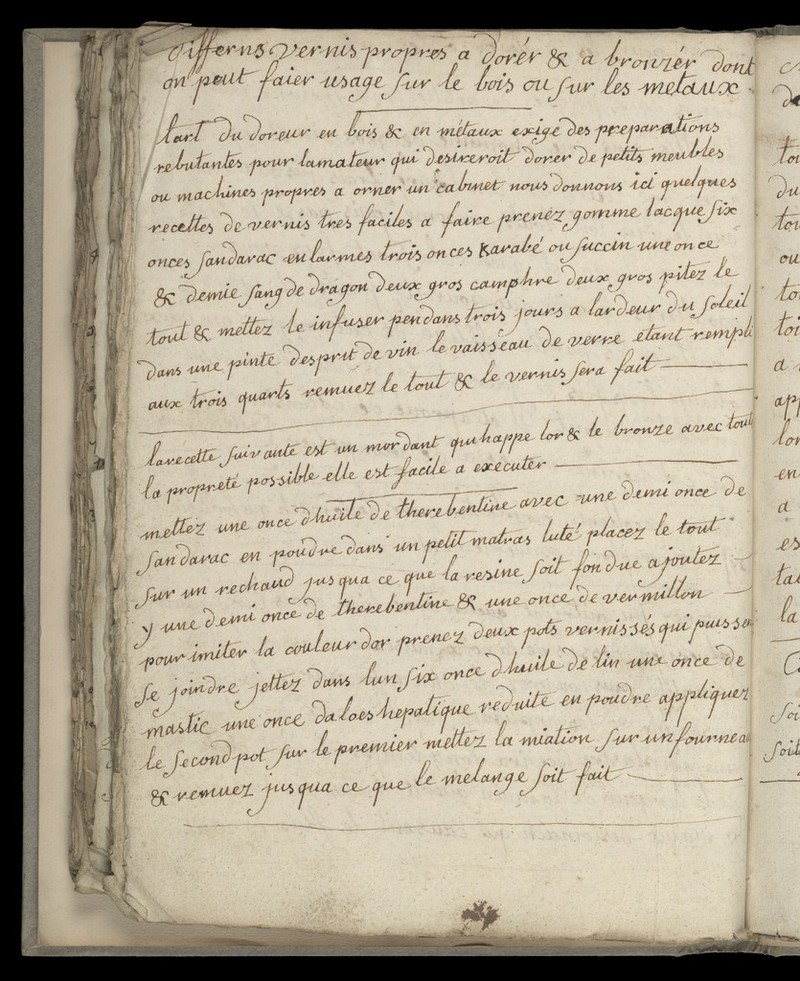 differns vernis propres a dorér & a bronzér dont
on peut faier usage sur le bois ou sur les metaux
lart du doreur en bois & en métaux exige des preparations
rebutantes pour lamateur qui desireroit dorer de petits meubles
ou machines propres a orner un cabinet nous donnons ici quelques
recettes de vernis tres faciles a faire prenéz gomme lacque six
onces sandarac en larmes trois onces karabé ou succin une once
& demie sang de dragon deux gros camphre deux gros pilez le
tout & mettez le infuser pendans trois jours a lardeur du soleil
dans une pinte desprit de vin le vaisseau de verre etant rempli
aux trois quarts remuez le tout & le vernis sera fait
larecette suivante est un mordant qui happe lor & le bronze avec toute
la propreté possible elle est facile a exécuter
mettez une once dhuile de therebentine avec une demi once de
sandarac en poudre dans un petit matras luté placez le tout
sur un rechaud jusqua ce que la resine soit fondue ajoutez
y une demi once de therebentine & une once de vermillon
pour imiter la couleur dor prenez deux pots vernissés qui puisse
se joindre jettez dans lun six once dhuile de lin une once de
mastic une once daloes hepatique reduite en poudre appliquez
le second pot sur le premier mettez la miation sur un fournea
& remuez jusqua ce que le melange soit fait
to
du
to
ou
to
toi
a
app
lor
en
a
es
la
soi
soit